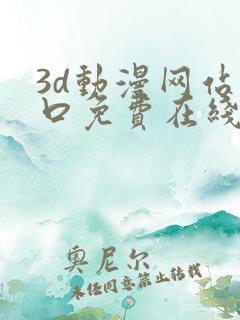 3d動漫网佔
口免費在綫
奥尼尔
未经同意禁止转载